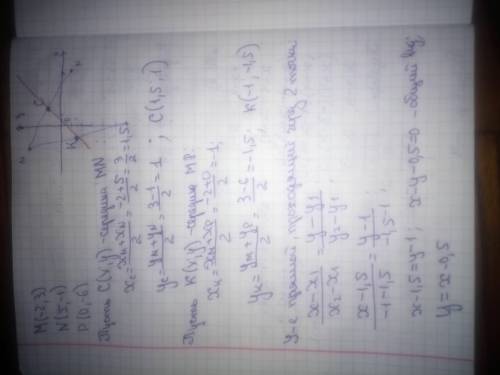 M(-2,3)
N(5,-1)
P(0,-6)
Пусть C(x,y) - середина MN
x_C = (x_M + x_N)/2 = (-2+5)/2 = 3/2 = 1,5
y_C = (y_M + y_N)/2 = (3-1)/2 = 1 ; C(1,5; 1)
Пусть K(x,y) - середина MP:
x_K = (x_M + x_P)/2 = (-2+0)/2 = -1;
y_K = (y_M + y_P)/2 = (3-6)/2 = -1,5; K(-1,-1,5)
У-е прямой, проходящей через 2 точки
(x-x_1)/(x_2-x_1) = (y-y_1)/(y_2-y_1);
(x-1,5)/(-1-1,5) = (y-1)/(-1,5-1);
x-1,5=y-1; x-y-0,5=0 - общий вид;
y=x-0,5